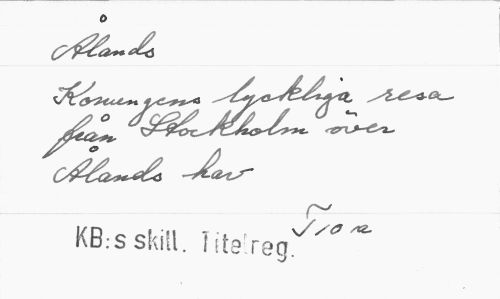 Ålands
Konungens lyckliga resa
från Stockholm över
Ålands hav
T 10 a
KB:s skill. Titelreg.